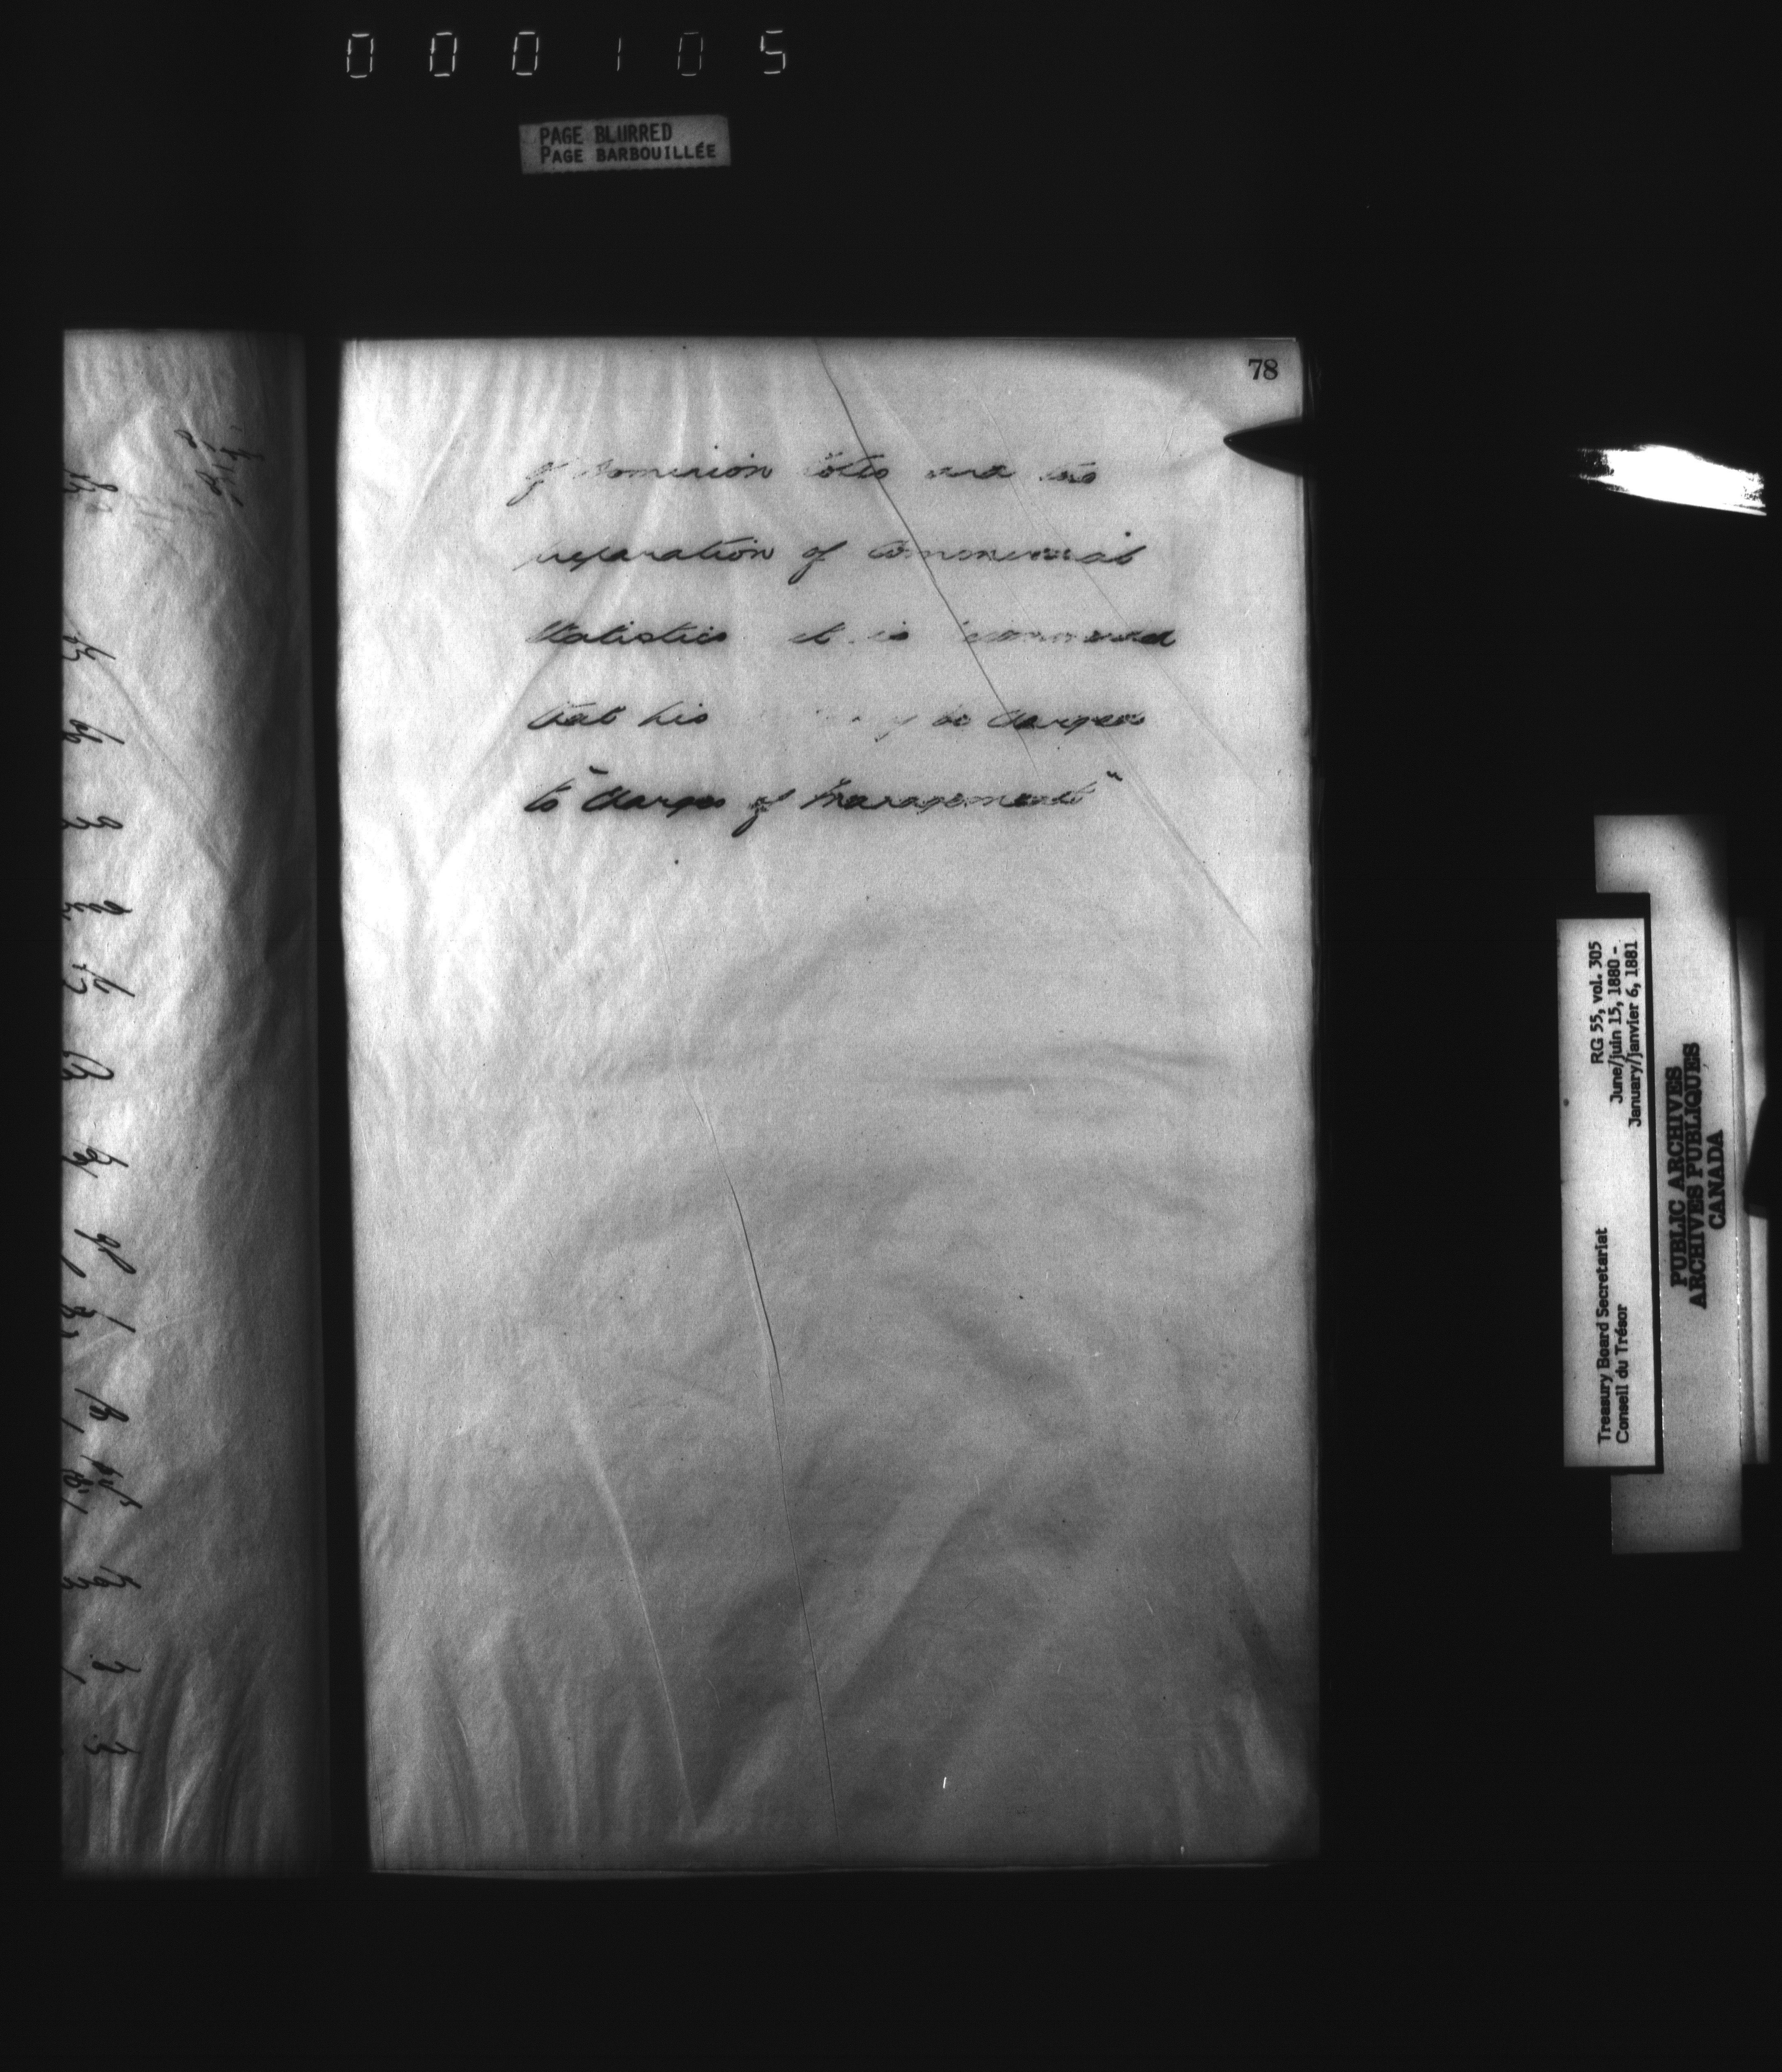 000105
PAGE BLURRED
PAGE BARBOUILLÉE
78
of Dominion Notes and the
preparation of Commercial
Statistics it is recommended
that his be charged
to "Charges of Management"
RG 55, vol. 305
June/juin 15, 1880 -
January/janvier 6, 1881
Treasury Board Secretariat
Conseil du Trésor
PUBLIC ARCHIVES
ARCHIVES PUBLIQUES
CANADA